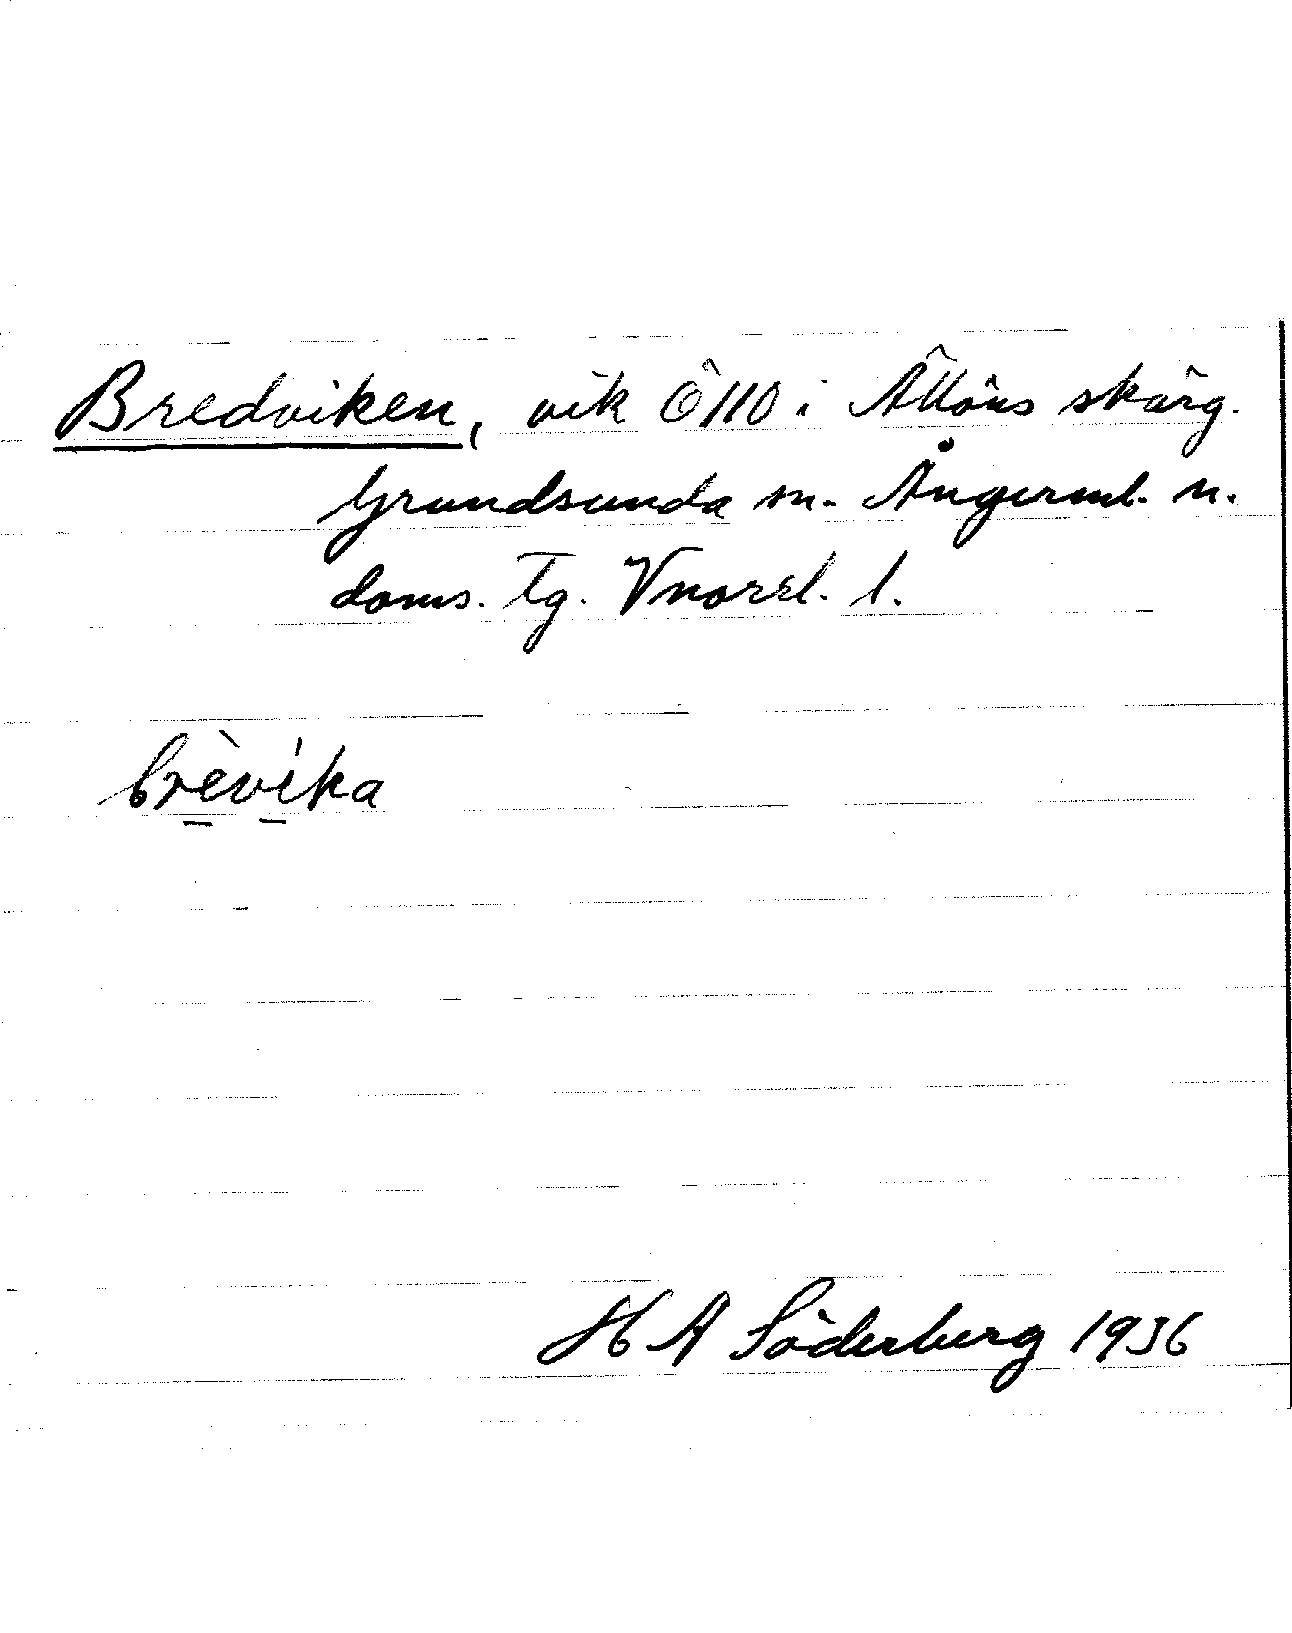 Bredviken, vik Ö110 i Ällöns skärg.
Grundsunda sn. Ångerml. n.
doms. Tg. Vnorrl. l.
brèvíka
H A Söderberg 1936